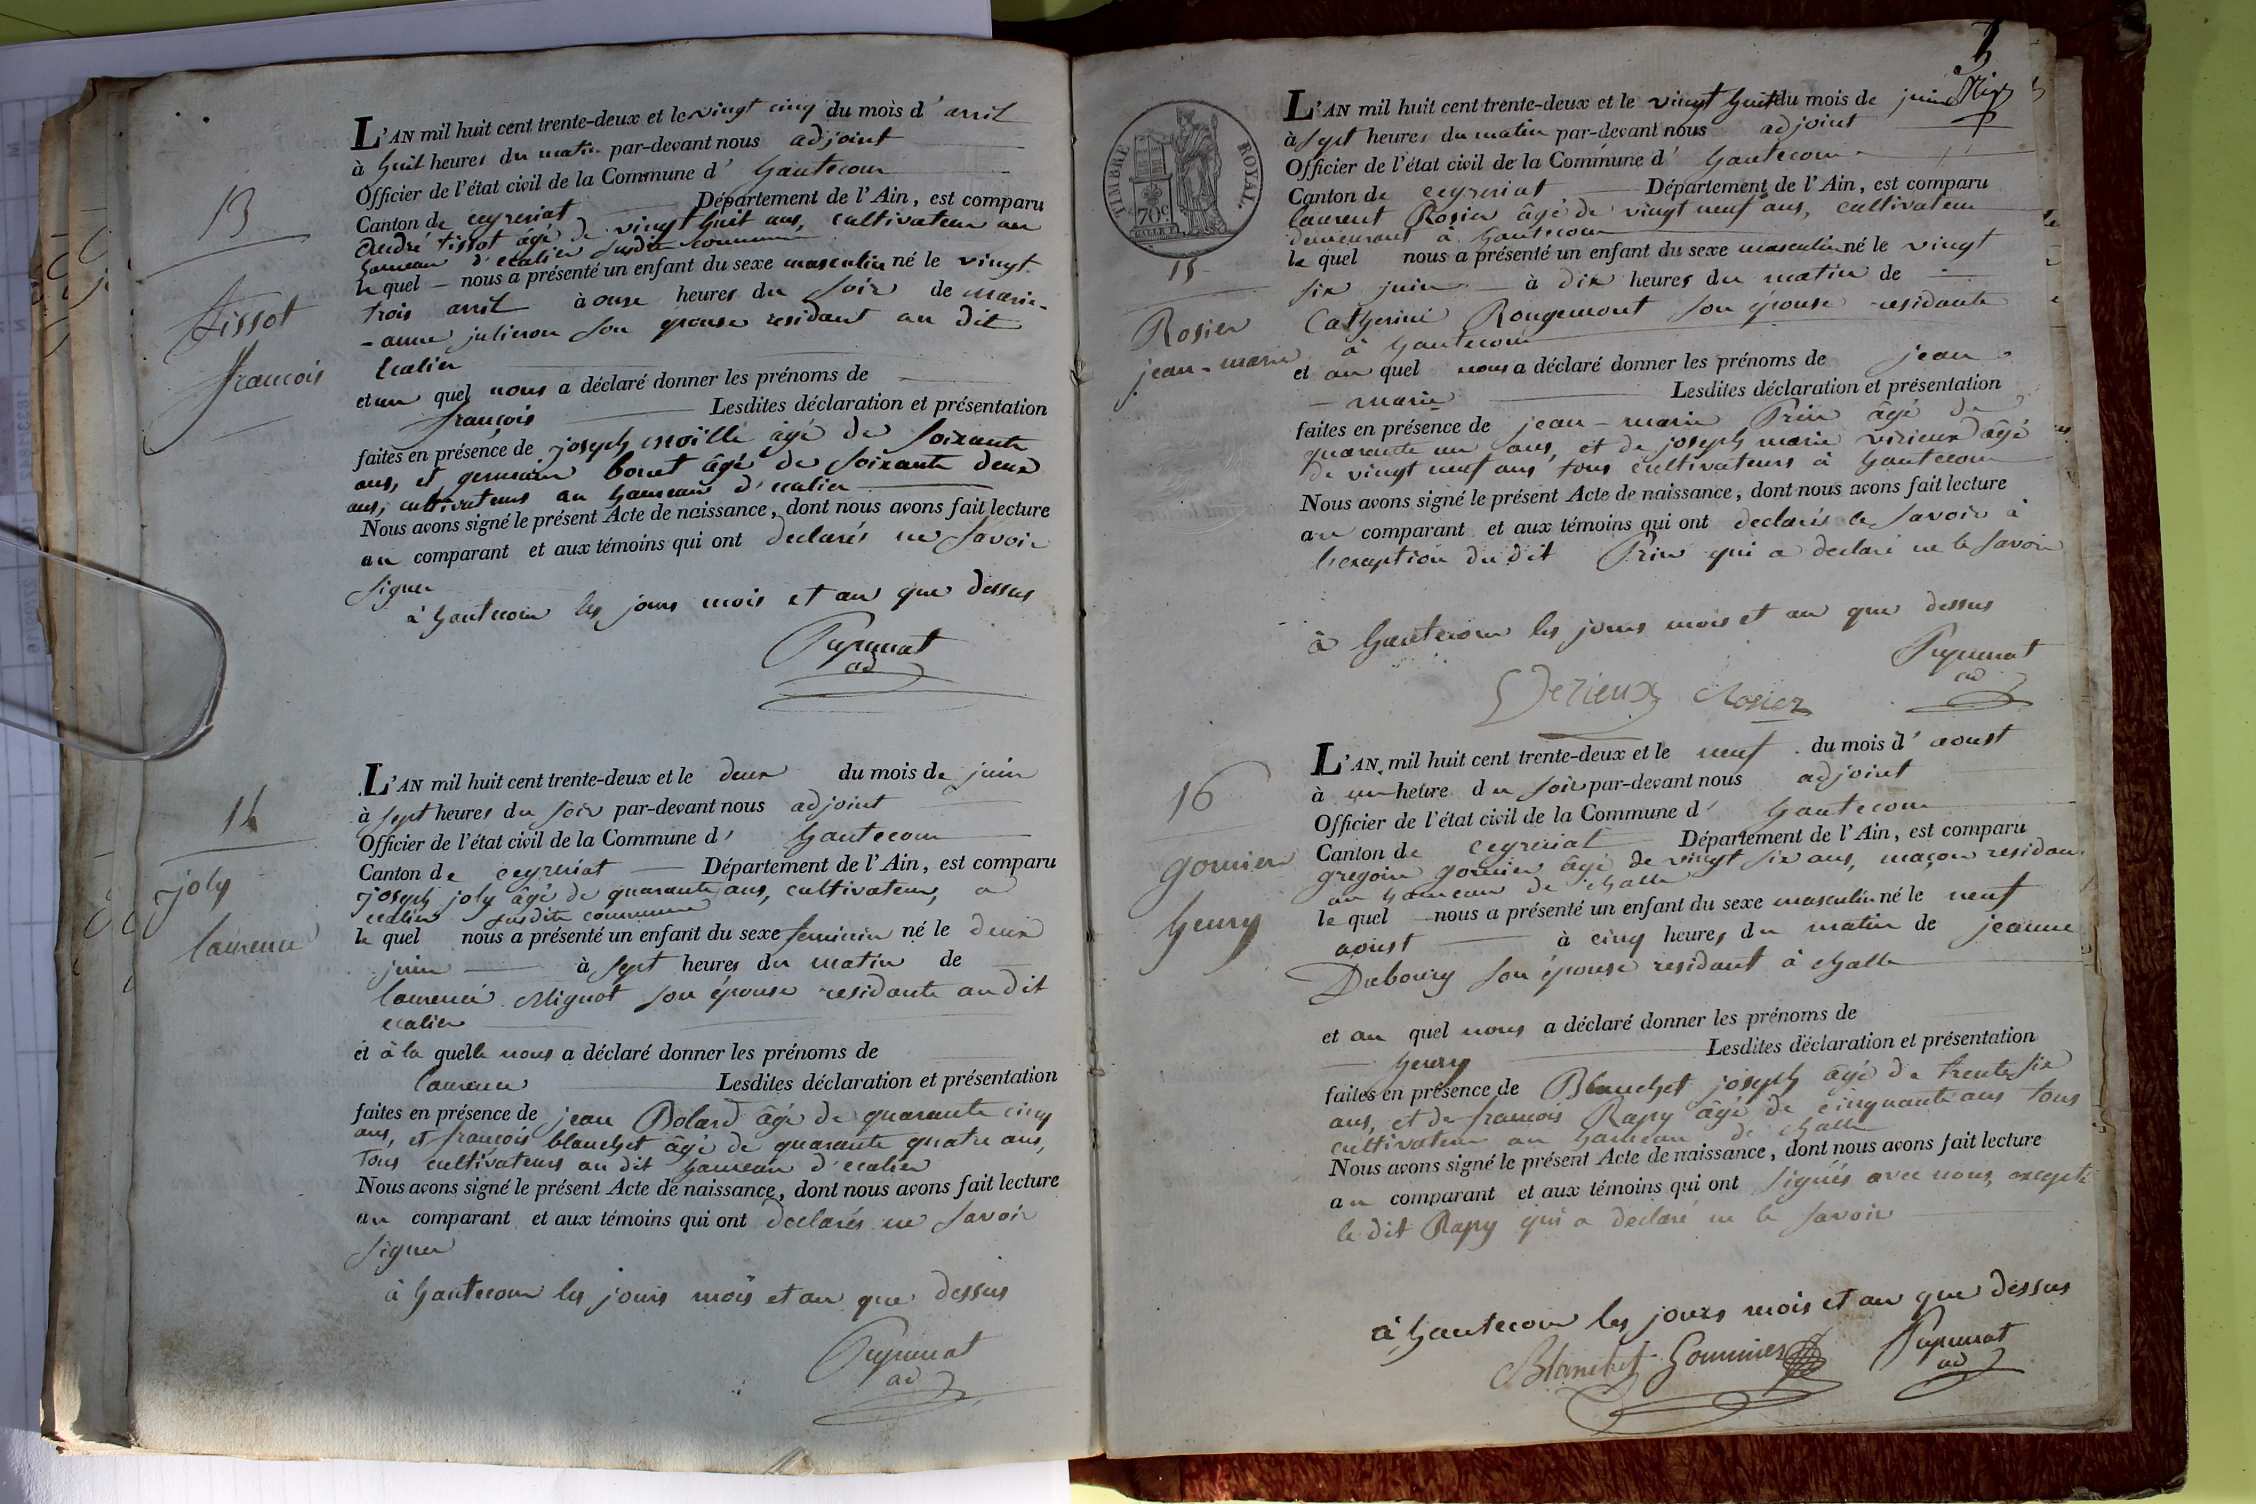 13
Tissot
françois
L'AN mil huit cent trente-deux et le vingt cinq du mois d' avril
à huit heures du matin par-devant nous adjoint
Officier de l'état civil de la Commune d' hautecour
Canton de ceyzeriat Département de l'Ain, est comparu
André tissot âgé de vingt huit ans, cultivateur au
hameau d'ecalier susdite commune
le quel nous a présenté un enfant du sexe masculin né le vingt
trois avril à onze heures du soir de marie-
-anne julienon son epouse residant au dit
Ecalier
et au quel nous a déclaré donner les prénoms de
françois Lesdites déclaration et présentation
faites en présence de joseph moille âgé de soixante
ans, et germain bonet âgé de soixante deux
ans, cultivateurs au hameau d'ecalier
Nous avons signé le présent Acte de naissance, dont nous avons fait lecture
au comparant et aux témoins qui ont declarés ne savoir
signer
à hautecour les jours mois et an que dessus
ad
14
joly
laurence
L'AN mil huit cent trente-deux et le deux du mois de juin
à sept heures du soir par-devant nous adjoint
Officier de l'état civil de la Commune d' hautecour
Canton de ceyzeriat Département de l'Ain, est comparu
joseph joly âgé de quarante ans, cultivateur, a
ecalier susdite commune
le quel nous a présenté un enfant du sexe feminin né le deux
juin à sept heures du matin de
laurence Mignot son épouse residante au dit
ecalier
et à la quelle nous a déclaré donner les prénoms de
laurence Lesdites déclaration et présentation
faites en présence de jean Bolard âgé de quarante cinq
ans, et françois blanchet âgé de quarante quatre ans,
tous cultivateurs au dit hameau d'ecalier
Nous avons signé le présent Acte de naissance, dont nous avons fait lecture
au comparant et aux témoins qui ont declarés ne savoir
signer
à hautecour les jours mois et an que dessus
ad
7
TIMBRE ROYAL.
70c
15
Rosier
jean-marie
L'AN mil huit cent trente-deux et le vingt huit du mois de juin
à sept heures du matin par-devant nous adjoint
Officier de l'état civil de la Commune d' hautecour
Canton de ceyzeriat Département de l'Ain, est comparu
laurent Rosier âgé de vingt neuf ans, cultivateur
demeurant à hautecour
le quel nous a présenté un enfant du sexe masculin né le vingt
six juin à dix heures du matin de
Catherine Rougemont son épouse residante
à hautecour
et au quel nous a déclaré donner les prénoms de jean
- marie Lesdites déclaration et présentation
faites en présence de jean-marie Prin âgé de
quarante un ans, et de joseph marie virieux âgé
de vingt neuf ans tous cultivateurs à hautecour
Nous avons signé le présent Acte de naissance, dont nous avons fait lecture
au comparant et aux témoins qui ont declarés le savoir à
l'exeption du dit Prin qui a declaré ne le savoir
à hautecour les jours mois et an que dessus
ad
Verieux Rosier
16
gomier
henry
L'AN mil huit cent trente-deux et le neuf du mois d' aoust
à un heure du soir par-devant nous adjoint
Officier de l'état civil de la Commune d' hautecour
Canton de ceyzeriat Département de l'Ain, est comparu
gregoire gomier âgé de vingt six ans, maçon residant
au hameau de challe
le quel nous a présenté un enfant du sexe masculin né le neuf
aoust à cinq heures du matin de jeanne
Dubourg son épouse residant à challe
et au quel nous a déclaré donner les prénoms de
henry Lesdites déclaration et présentation
faites en présence de Blanchet joseph âgé de trente six
ans, et de francois Rapy âgé de cinquante ans tous
cultivateur au hameau de challe
Nous avons signé le présent Acte de naissance, dont nous avons fait lecture
au comparant et aux témoins qui ont signés avec nous, excepté
le dit Rapy qui a declaré ne le savoir
à hautecour les jours mois et an que dessus
Blanchet Gommier
ad